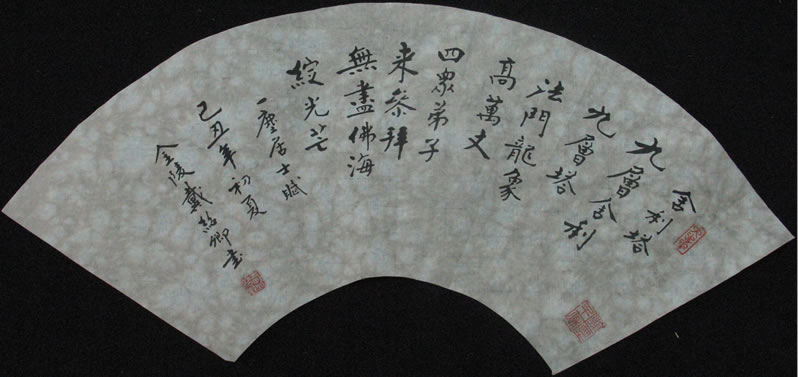 舍利塔
九層舍利
九層塔
法門龍象
高萬丈
四眾弟子
来參拜
無盡佛海
綻光芒
一塵居士賦
己丑年初夏
金陵戴紹卿書